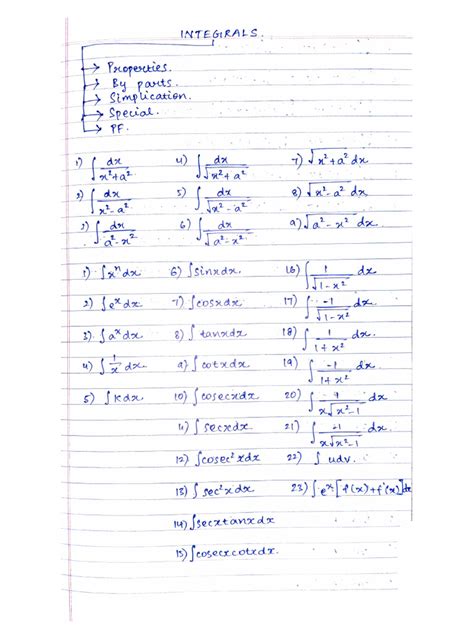 INTEGRALS.
→ Properties.
→ By parts.
→ Simplication.
→ Special.
→ PF.
1) ∫ dx/(x²+a²) 4) ∫ dx/√(x²+a²) 7) √(x²+a²) dx
2) ∫ dx/(x²-a²) 5) ∫ dx/√(x²-a²) 8) √(x²-a²) dx
3) ∫ dx/(a²-x²) 6) ∫ dx/√(a²-x²) 9) √(a²-x²) dx.
1) ∫xⁿdx 6) ∫sinxdx. 16) ∫ 1/√(1-x²) dx.
2) ∫eˣdx 7) ∫cosxdx 17) ∫ -1/√(1-x²) dx.
3) ∫aˣdx 8) ∫tanxdx 18) ∫ 1/(1+x²) dx.
4) ∫ 1/x dx. 9) ∫cotxdx 19) ∫ -1/(1+x²) dx.
5) ∫kdx 10) ∫cosecxdx 20) ∫ 1/(x√(x²-1)) dx
11) ∫secxdx 21) ∫ -1/(x√(x²-1)) dx
12) ∫cosec²xdx 22) ∫udv.
13) ∫sec²xdx 23) ∫eˣ[f(x)+f'(x)]dx
14) ∫secxtanxdx
15) ∫cosecxcotxdx.